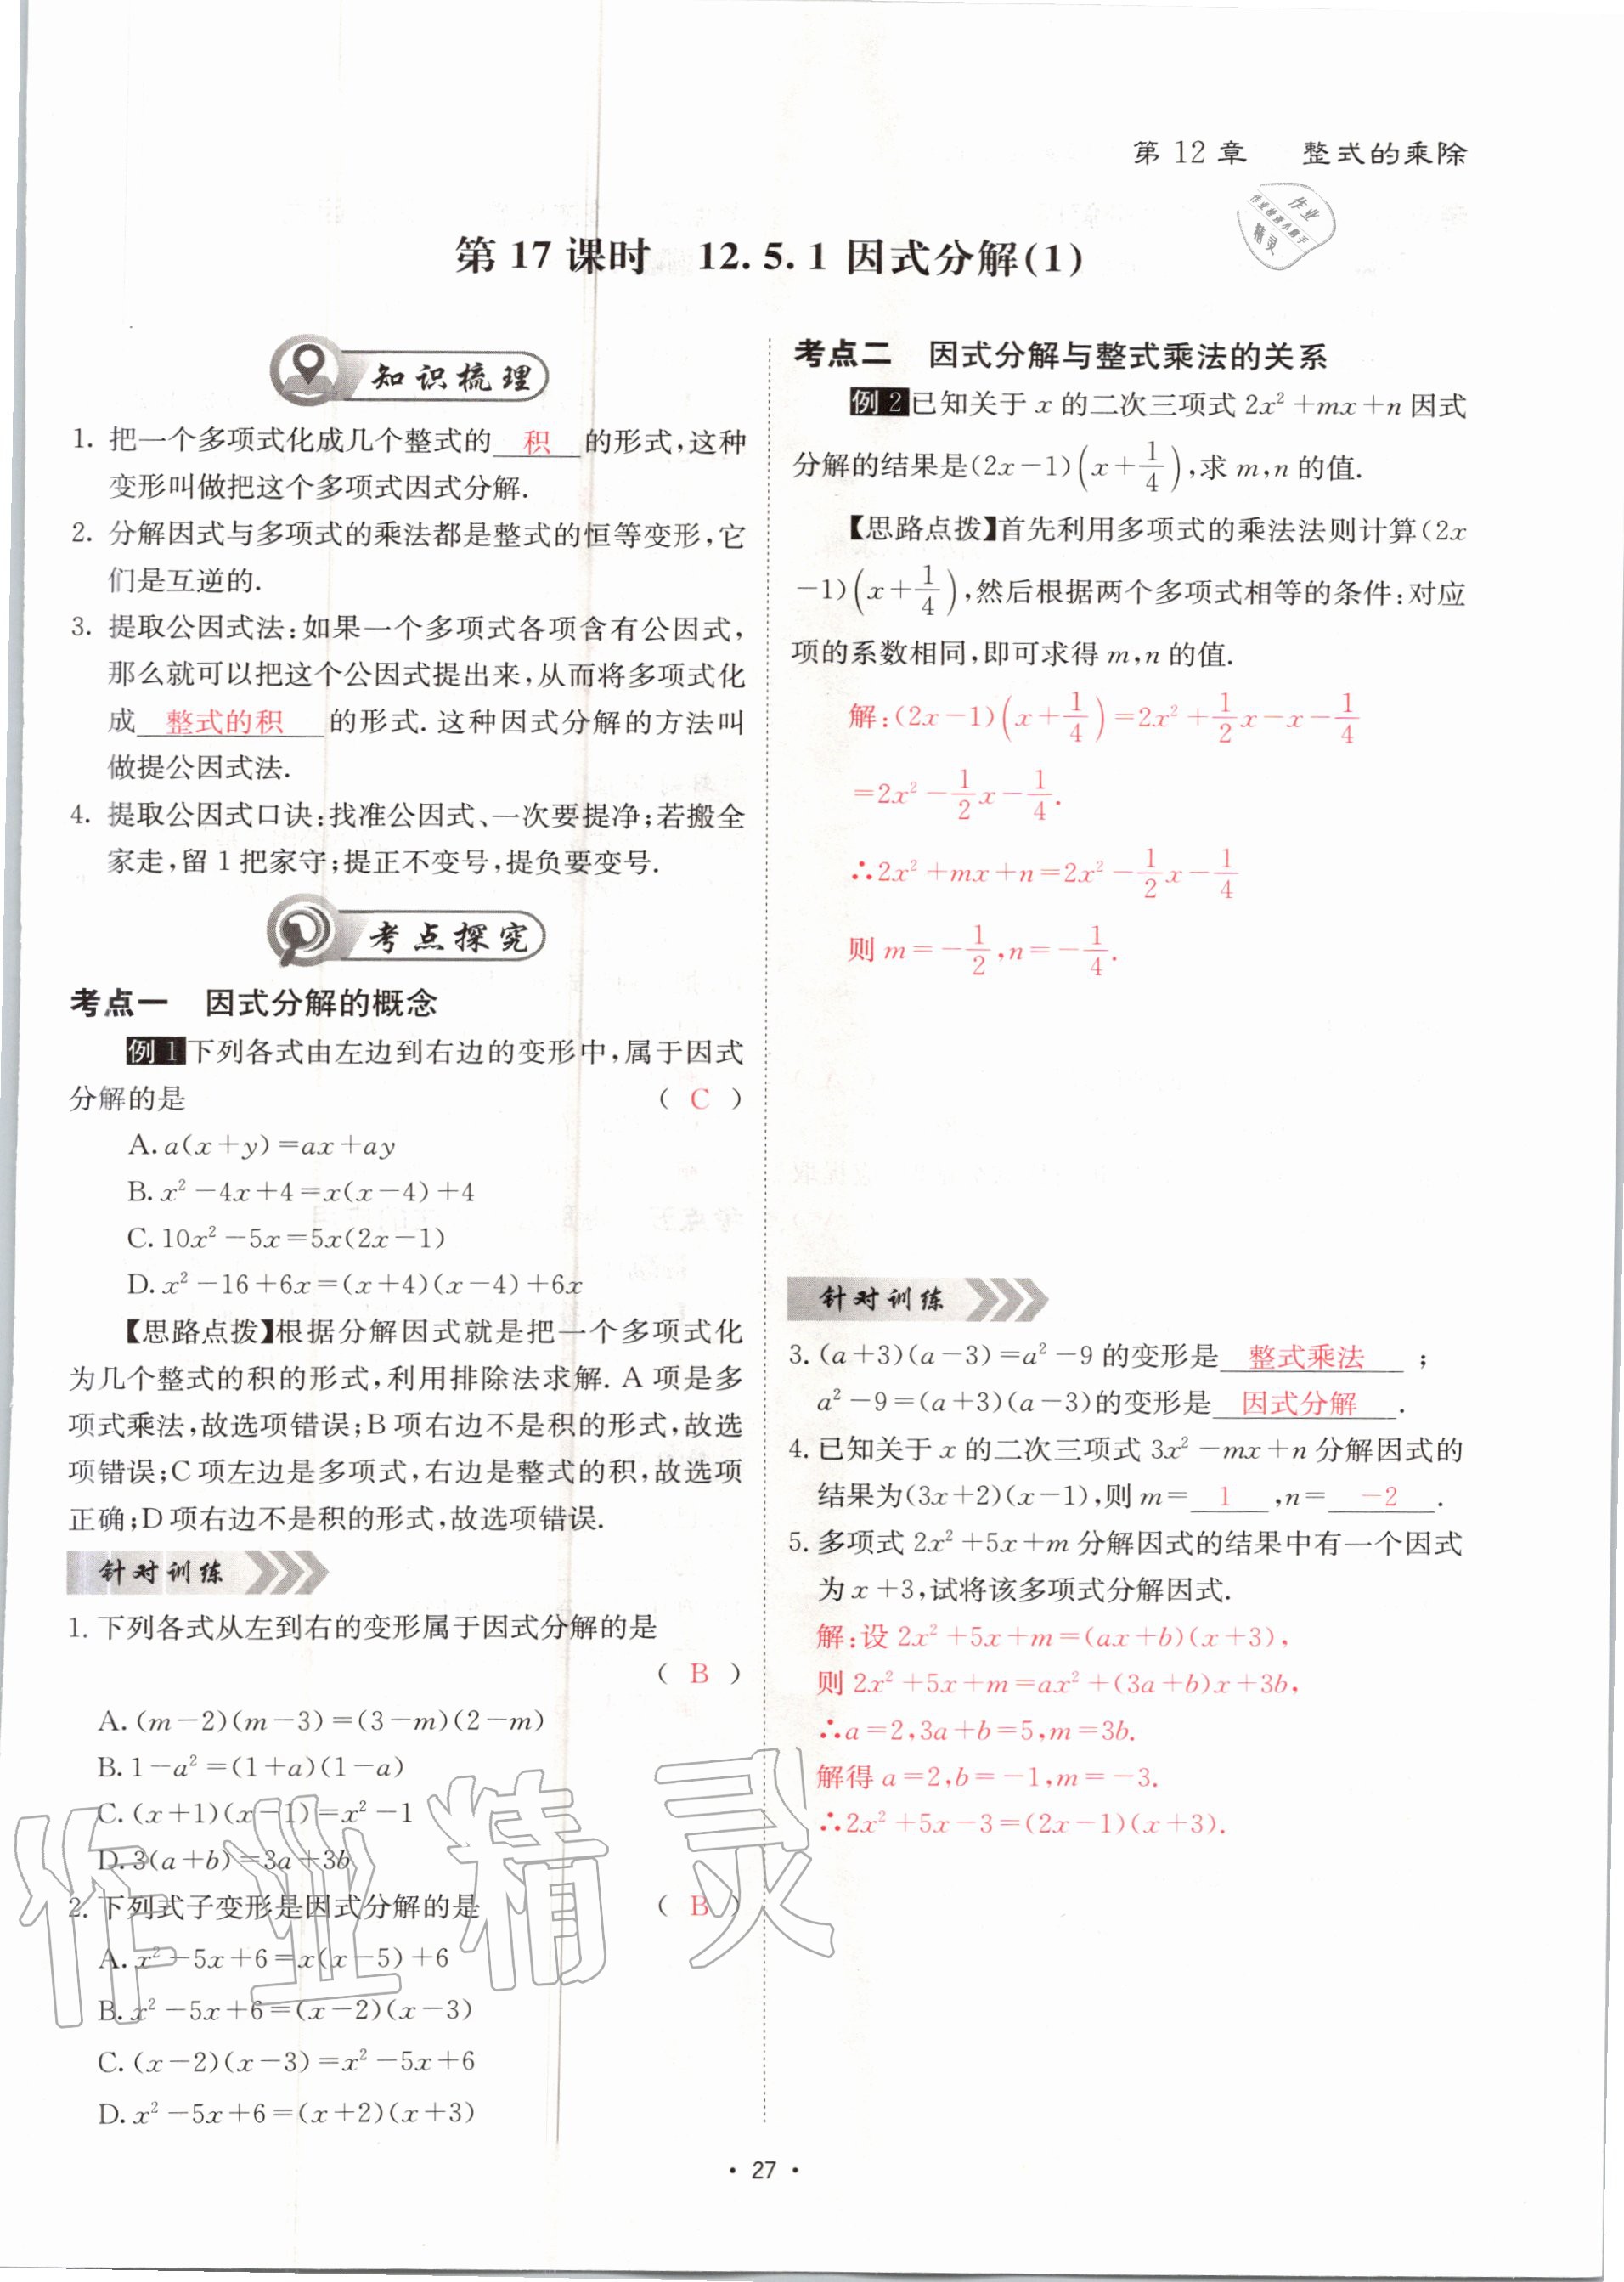 第 12 章 整式的乘除
作业
作业检查小助手
精灵
第 17 课时 12.5.1 因式分解(1)
知识梳理
1. 把一个多项式化成几个整式的 积 的形式,这种
变形叫做把这个多项式因式分解.
2. 分解因式与多项式的乘法都是整式的恒等变形,它
们是互逆的.
3. 提取公因式法:如果一个多项式各项含有公因式,
那么就可以把这个公因式提出来,从而将多项式化
成 整式的积 的形式.这种因式分解的方法叫
做提公因式法.
4. 提取公因式口诀:找准公因式、一次要提净;若搬全
家走,留 1 把家守;提正不变号,提负要变号.
考点探究
考点一 因式分解的概念
例 1 下列各式由左边到右边的变形中,属于因式
分解的是 ( C )
A. a(x+y)=ax+ay
B. x²-4x+4=x(x-4)+4
C. 10x²-5x=5x(2x-1)
D. x²-16+6x=(x+4)(x-4)+6x
【思路点拨】根据分解因式就是把一个多项式化
为几个整式的积的形式,利用排除法求解. A 项是多
项式乘法,故选项错误;B 项右边不是积的形式,故选
项错误;C 项左边是多项式,右边是整式的积,故选项
正确;D 项右边不是积的形式,故选项错误.
针对训练
1. 下列各式从左到右的变形属于因式分解的是
( B )
A. (m-2)(m-3)=(3-m)(2-m)
B. 1-a²=(1+a)(1-a)
C. (x+1)(x-1)=x²-1
D. 3(a+b)=3a+3b
2. 下列式子变形是因式分解的是 ( B )
A. x²-5x+6=x(x-5)+6
B. x²-5x+6=(x-2)(x-3)
C. (x-2)(x-3)=x²-5x+6
D. x²-5x+6=(x+2)(x+3)
考点二 因式分解与整式乘法的关系
例 2 已知关于 x 的二次三项式 2x²+mx+n 因式
分解的结果是(2x-1)(x+1/4),求 m,n 的值.
【思路点拨】首先利用多项式的乘法法则计算(2x
-1)(x+1/4),然后根据两个多项式相等的条件:对应
项的系数相同,即可求得 m,n 的值.
解:(2x-1)(x+1/4)=2x²+1/2x-x-1/4
=2x²-1/2x-1/4.
∴2x²+mx+n=2x²-1/2x-1/4
则 m=-1/2,n=-1/4.
针对训练
3. (a+3)(a-3)=a²-9 的变形是 整式乘法 ;
a²-9=(a+3)(a-3)的变形是 因式分解 .
4. 已知关于 x 的二次三项式 3x²-mx+n 分解因式的
结果为(3x+2)(x-1),则 m= 1 ,n= -2 .
5. 多项式 2x²+5x+m 分解因式的结果中有一个因式
为 x+3,试将该多项式分解因式.
解:设 2x²+5x+m=(ax+b)(x+3),
则 2x²+5x+m=ax²+(3a+b)x+3b,
∴a=2,3a+b=5,m=3b.
解得 a=2,b=-1,m=-3.
∴2x²+5x-3=(2x-1)(x+3).
作业精灵
· 27 ·